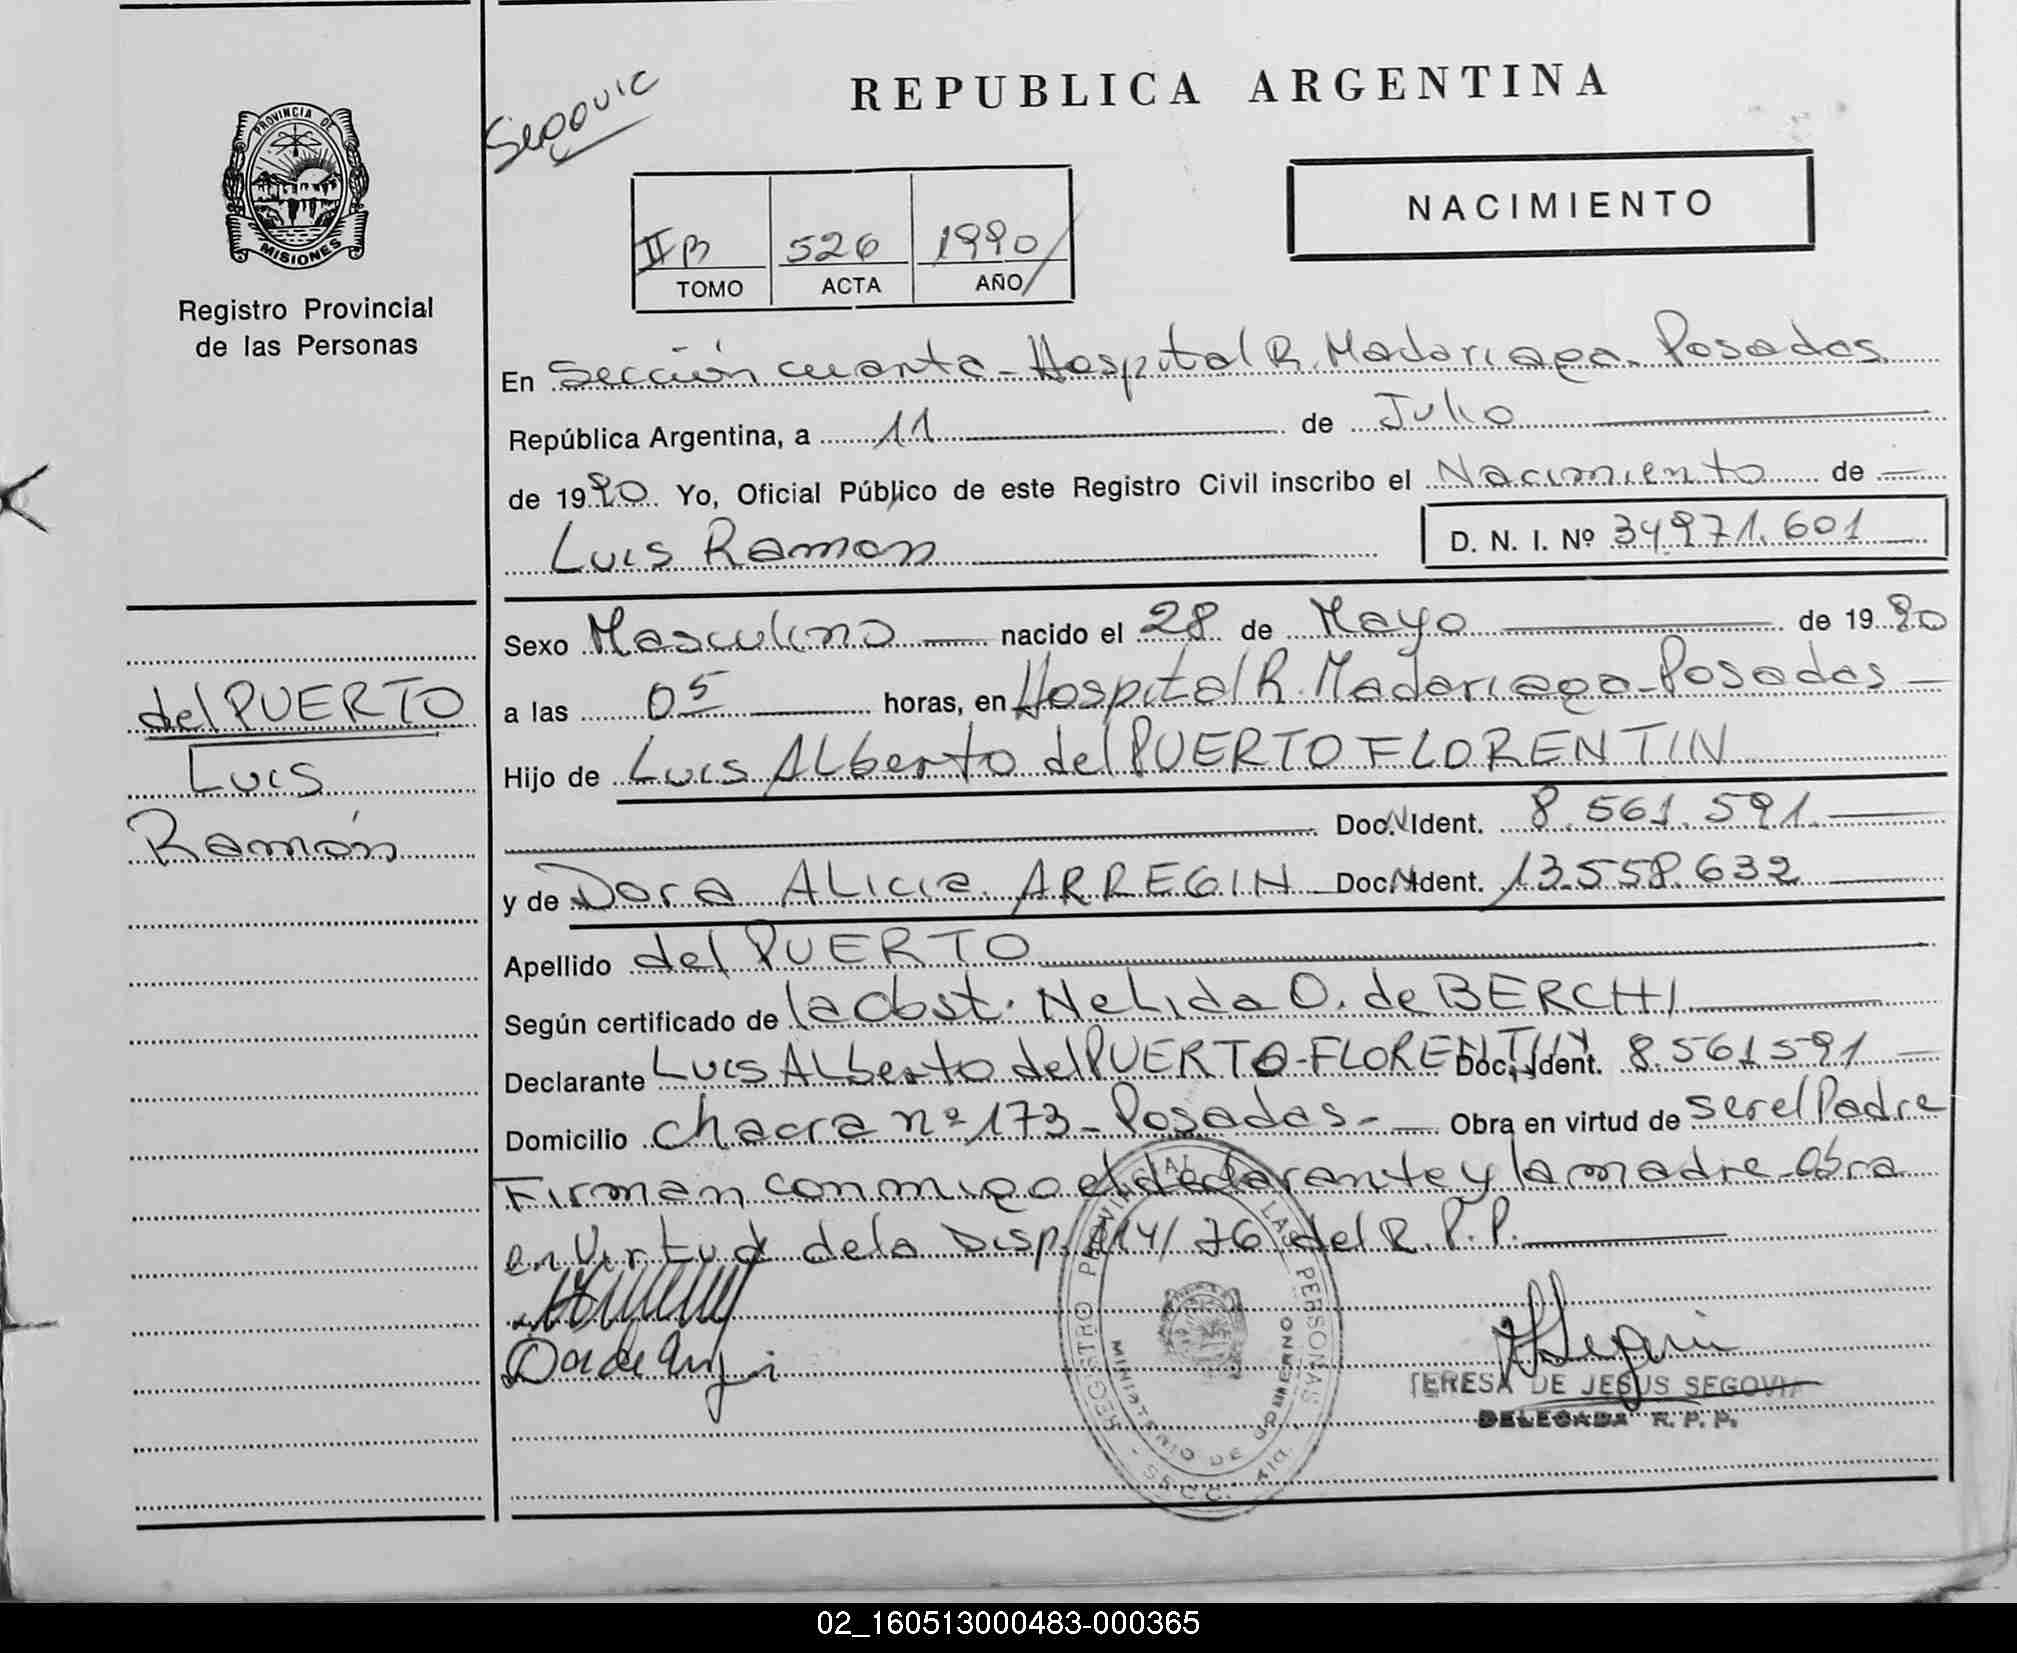 PROVINCIA DE
MISIONES
Registro Provincial
de las Personas
del PUERTO
Luis
Ramón
REPUBLICA ARGENTINA
NACIMIENTO
IIB 526 1990
TOMO ACTA AÑO
En Sección cuarta - Hospital R. Madariaga - Posadas
República Argentina, a 11 de Julio
de 1990. Yo, Oficial Público de este Registro Civil inscribo el Nacimiento de
Luis Ramon D. N. I. Nº 34.971.601
Sexo Masculino nacido el 28 de Mayo de 1990
a las 05 horas, en Hospital R. Madariaga - Posadas
Hijo de Luis Alberto del PUERTO FLORENTIN
Doc. N Ident. 8.561.591
y de Dora Alicia ARREGIN Doc. N Ident. 13.558.632
Apellido del PUERTO
Según certificado de la Obst. Nelida O. de BERCHI
Declarante Luis Alberto del PUERTO-FLORENTIN Doc. Ident. 8.561591
Domicilio chacra nº 173 - Posadas - Obra en virtud de ser el Padre
Firman conmigo el declarante y la madre - Obra
en Virtud de la Disp. 414/76 del R. P. P.
REGISTRO PROVINCIAL LAS PERSONAS
MINISTERIO DE GOBIERNO
SECC. 4ta.
TERESA DE JESUS SEGOVIA
DELEGADA R. P. P.
02_160513000483-000365